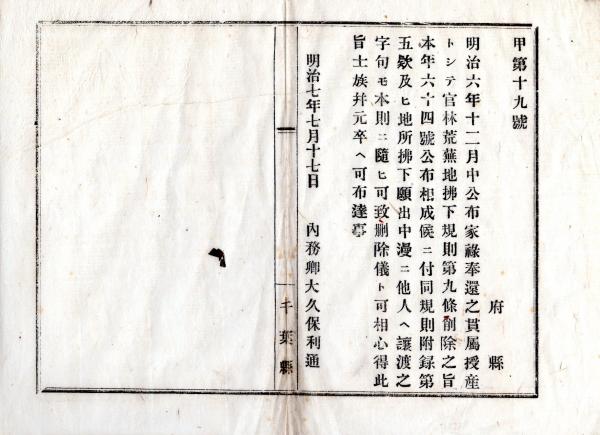 甲第十九號
府縣
明治六年十二月中公布家祿奉還之貫屬授產
トシテ官林荒蕪地拂下規則第九條削除之旨
本年六十四號公布相成候ニ付同規則附録第
五欵及ヒ地所拂下願出中漫ニ他人ヘ讓渡之
字句モ本則ニ隨ヒ可致刪除儀ト可相心得此
旨士族幷元卒ヘ可布達事
明治七年七月十七日 內務卿大久保利通
千葉縣